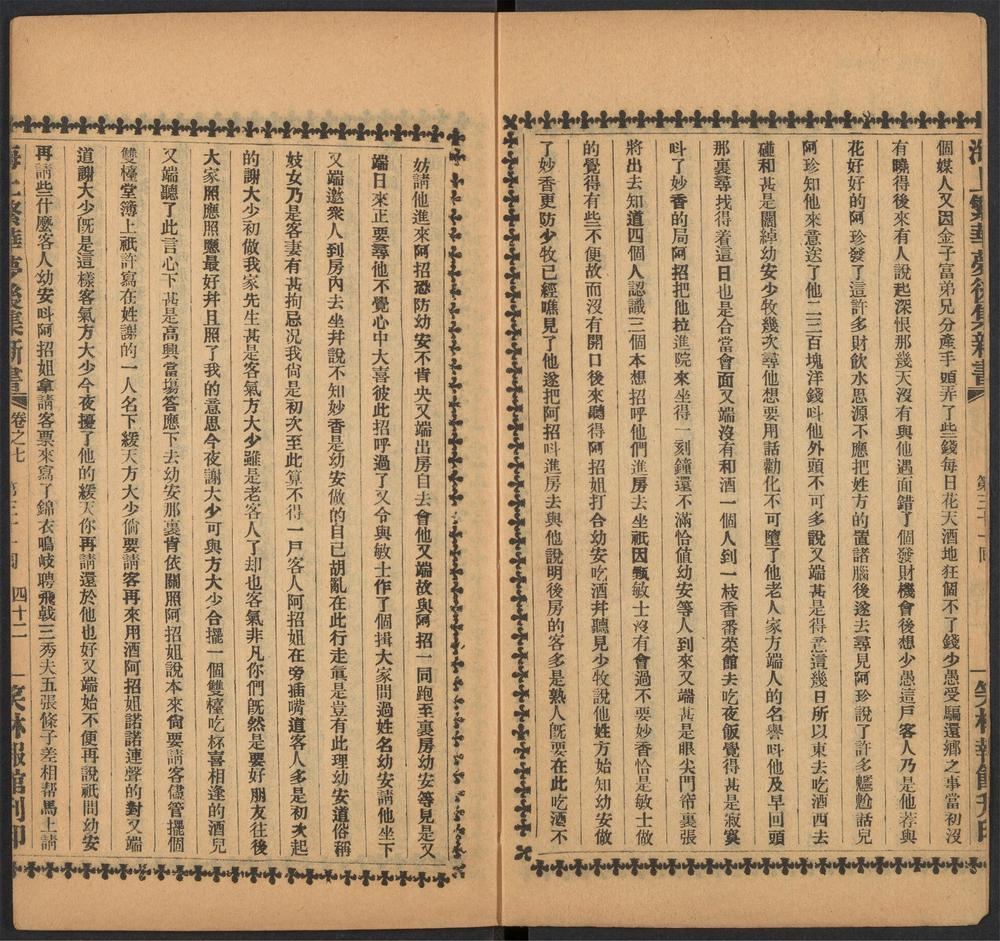 海上繁華夢後集新書
第三十一回
笑林報館刊印
個媒人又因金子富弟兄分產手頭弄了些錢每日花天酒地狂個不了錢少愚受騙還鄉之事當初沒
有曉得後來有人說起深恨那幾天沒有與他遇面錯了個發財機會後想少愚這戶客人乃是他荐與
花好好的阿珍發了這許多財飲水思源不應把姓方的置諸腦後遂去尋見阿珍說了許多尷尬話兒
阿珍知他來意送了他二三百塊洋錢呌他外頭不可多說又端甚是得意這幾日所以東去吃酒西去
碰和甚是闊綽幼安少牧幾次尋他想要用話勸化不可墮了他老人家方端人的名譽呌他及早回頭
那裏尋找得着這日也是合當會面又端沒有和酒一個人到一枝香番菜館去吃夜飯覺得甚是寂寞
呌了妙香的局阿招把他拉進院來坐得一刻鐘還不滿恰值幼安等人到來又端甚是眼尖門帘裏張
將出去知道四個人認識三個本想招呼他們進房去坐祇因甄敏士沒有會過不要妙香恰是敏士做
的覺得有些不便故而沒有開口後來聽得阿招姐打合幼安吃酒幷聽見少牧說他姓方始知幼安做
了妙香更防少牧已經瞧見了他遂把阿招呌進房去與他說明後房的客多是熟人旣要在此吃酒不
妨請他進來阿招恐防幼安不肯央又端出房自去會他又端故與阿招一同跑至裏房幼安等見是又
端日來正要尋他不覺心中大喜彼此招呼過了又令與敏士作了個揖大家問過姓名幼安請他坐下
又端邀衆人到房內去坐幷說不知妙香是幼安做的自已胡亂在此行走眞是豈有此理幼安道俗稱
妓女乃是客妻有甚拘忌况我尙是初次至此算不得一戶客人阿招姐在旁插嘴道客人多是初次起
的謝大少初做我家先生甚是客氣方大少雖是老客人了却也客氣非凡你們旣然是要好朋友往後
大家照應照應最好幷且照了我的意思今夜謝大少可與方大少合擺一個雙檯吃杯喜相逢的酒兒
又端聽了此言心下甚是高興當塲答應下去幼安那裏肯依關照阿招姐說本來尙要請客儘管擺個
雙檯堂簿上祇許寫在姓謝的一人名下緩天方大少倘要請客再來用酒阿招姐諾諾連聲的對又端
道謝大少旣是這樣客氣方大少今夜擾了他的緩天你再請還於他也好又端始不便再說祇問幼安
再請些什麼客人幼安呌阿招姐拿請客票來寫了錦衣鳴岐聘飛戟三秀夫五張條子差相帮馬上請
海上繁華夢後集新書 卷之七 第三十一回 四十二 笑林報館刊印